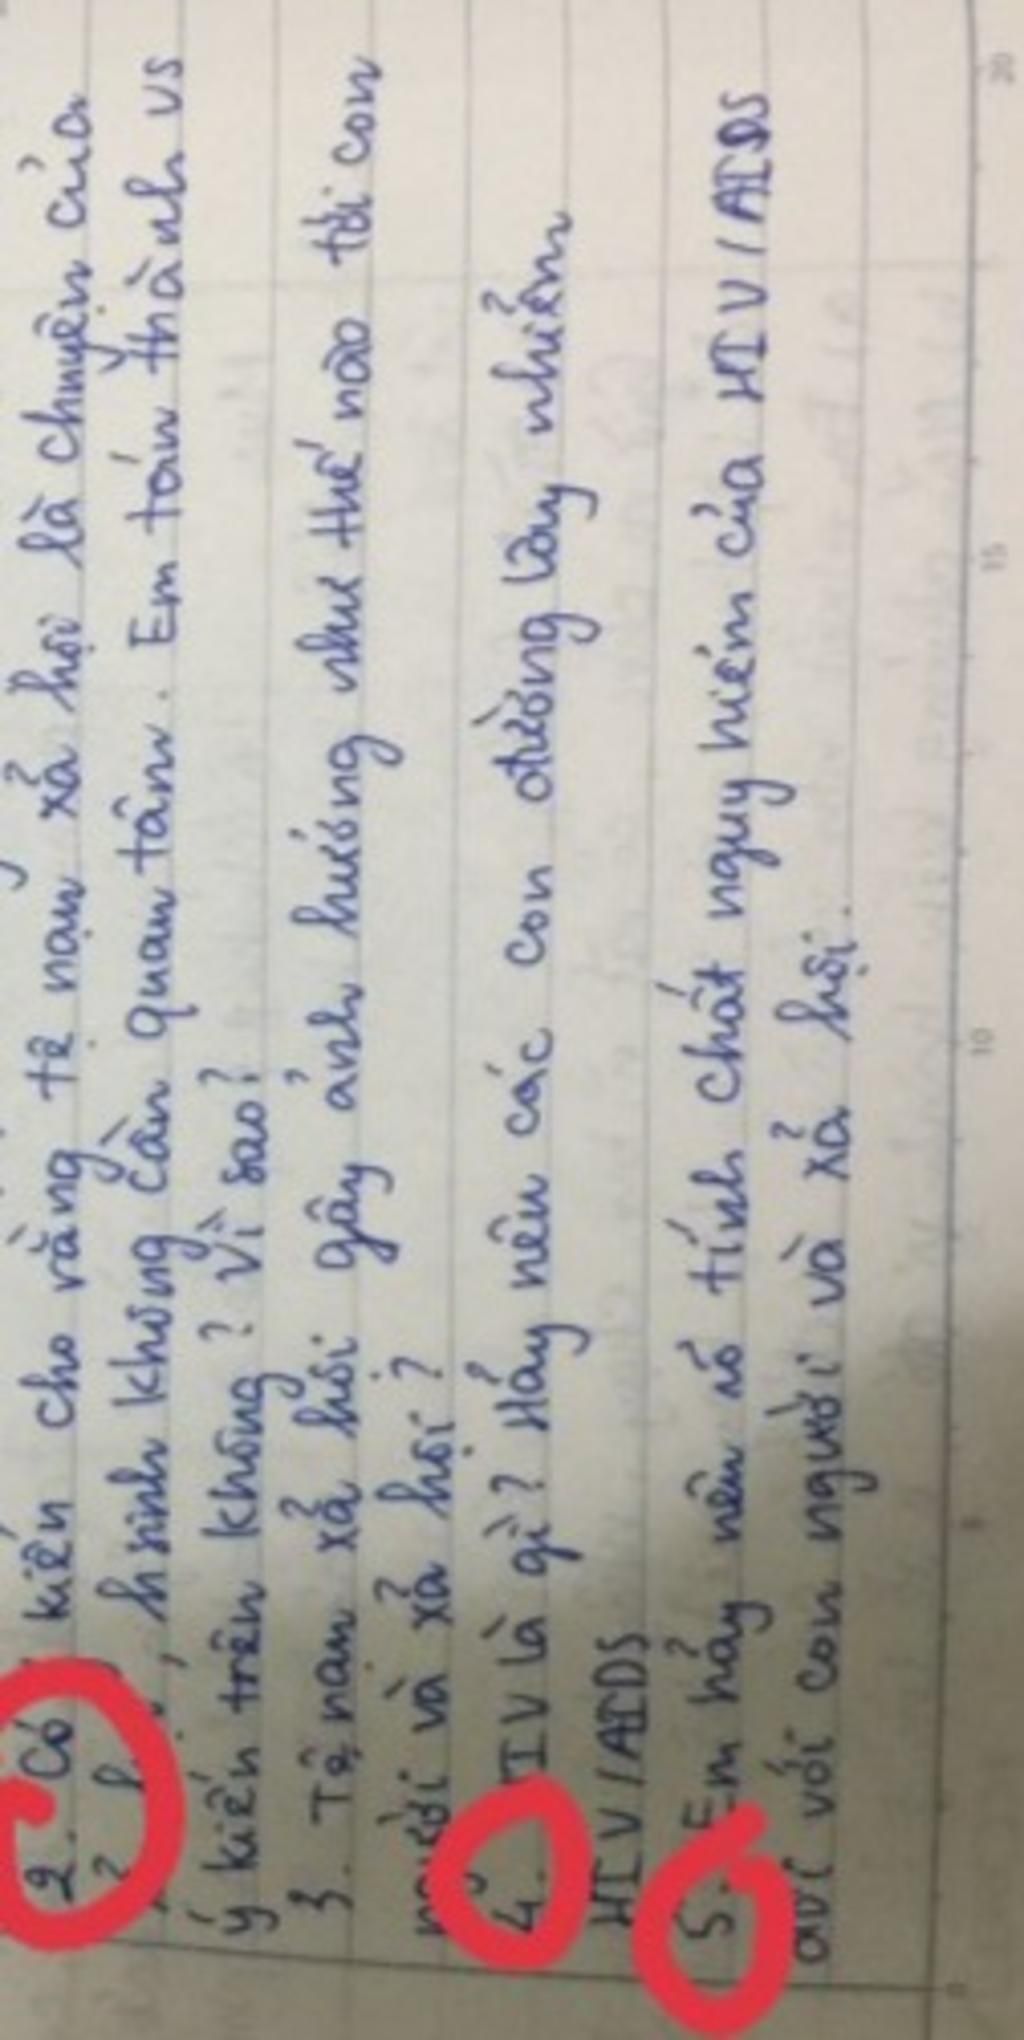 2. Có kiến cho rằng tệ nạn xả hội là chuyện của
hsinh không cần quan tâm. Em tán thành vs
ý kiến trên không? Vì sao?
3. Tệ nạn xả hội gây ảnh hưởng như thế nào tới con
người và xả hội?
4. IV là gì? Hảy nêu các con đường lây nhiểm
HIV/AIDS
5. Em hảy nêu rỏ tính chất nguy hiểm của HIV/AIDS
đối với con người và xả hội.
20
15
10
5
0